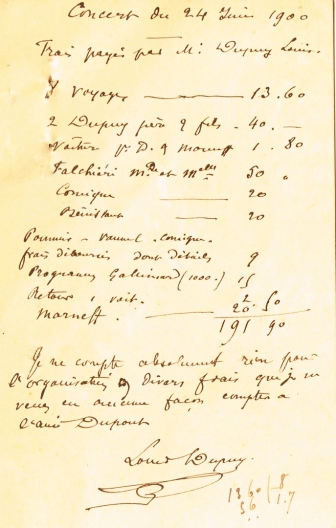 Concert du 24 Juin 1900
Frais payés par M. Dupuy Louis.
8 voyages 13.60
2 Dupuy père & fils - 40. -
Voiture pr D. & Marneff 1. 80
Falchiéri Mme et Melle 50 "
Comique 20
Pianistant 20
Pourvoir - Vannet - comique.
frais déboursés dont détails 9
Programmes (1000.) 15
Retour 1 voit. 2 50
Marneff. 20.
191 90
Je ne compte absolument rien pour
l'organisation & divers frais que je ne
veux en aucune façon compter à
l'ami Dupont
Louis Dupuy.
13.60 | 8
56 1.7